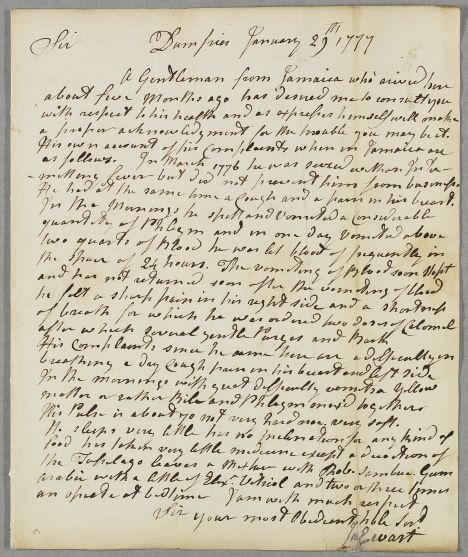 Sir Dumfries January 29th 1777
A Gentleman from Jamaica who arived here
about five Months ago has desired me to consult you
with respect to his health and as expresses himself will make
a proper acknowledgment for the trouble you may be at.
His own account of his Complaints when in Jamaica are
as follows. In March 1776 he was seized with an Inter
mitting fever but did not prevent him from business
He had at the same time a Cough and a pain in his breast.
In the Mornings he spitt and Vomited a Considerable
quantity of Phlegm and in one day Vomited above
two quarts of Blood he was let blood of frequently in
the space of 24 hours. The vomiting of Blood soon stopt
and has not returned soon after the vomiting of blood
he felt a sharp pain in his right side and a shortness
of breath for which he was ordered two doses of Calomel
after which several gentle Purges and Bark
His Complaints since he came here are a difficulty in
breathing a dry Cough pain in his breast and left side
In the mornings with great difficulty vomits a Yellow
matter or rather Bile and Phlegm mixed together
His Pulse is about 90 not very hard nor very soft.
He sleeps very little has no Inclination for any kind of
food has taken very little medicine except a decoction of
the Tussilago leaves a Mixture with Gum
arabic with a little of Elixr. Vitriol and two or three times
an opiate at bedtime I am with much respect
Sir
your most Obedient hble Servt
Ewart